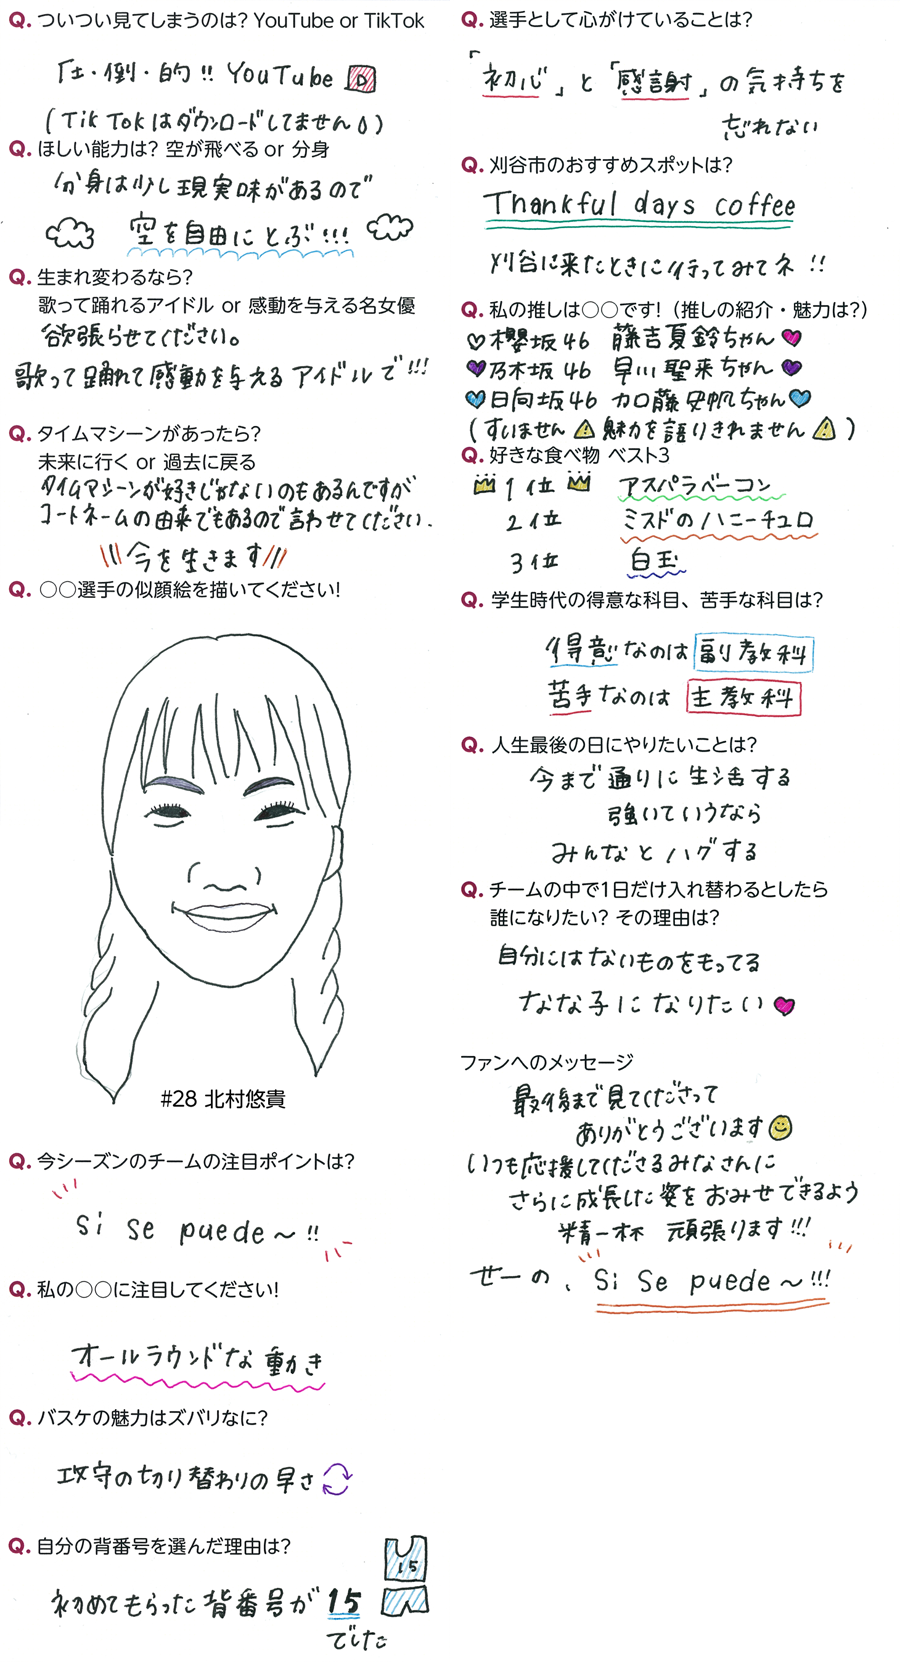 Q. ついつい見てしまうのは? YouTube or TikTok
圧・倒・的!! YouTube
(TikTokはダウンロードしてません)
Q. ほしい能力は? 空が飛べる or 分身
分身は少し現実味があるので
空を自由にとぶ!!!
Q. 生まれ変わるなら?
歌って踊れるアイドル or 感動を与える名女優
欲張らせてください。
歌って踊れて感動を与えるアイドルで!!!
Q. タイムマシーンがあったら?
未来に行く or 過去に戻る
タイムマシーンが好きじゃないのもあるんですが
コートネームの由来でもあるので言わせてください.
今を生きます
Q. ○○選手の似顔絵を描いてください!
#28 北村悠貴
Q. 今シーズンのチームの注目ポイントは?
si se puede〜!!
Q. 私の○○に注目してください!
オールラウンドな動き
Q. バスケの魅力はズバリなに?
攻守の切り替わりの早さ
Q. 自分の背番号を選んだ理由は?
15
初めてもらった背番号が15
でした
Q. 選手として心がけていることは?
「初心」と「感謝」の気持ちを
忘れない
Q. 刈谷市のおすすめスポットは?
Thankful days coffee
刈谷に来たときに行ってみてネ!!
Q. 私の推しは○○です! (推しの紹介・魅力は?)
♡櫻坂46 藤吉夏鈴ちゃん♥
♥乃木坂46 早川聖来ちゃん♥
♥日向坂46 加藤史帆ちゃん♥
(すいません⚠魅力を語りきれません⚠)
Q. 好きな食べ物 ベスト3
1位 アスパラベーコン
2位 ミスドのハニーチュロ
3位 白玉
Q. 学生時代の得意な科目、苦手な科目は?
得意なのは 副教科
苦手なのは 主教科
Q. 人生最後の日にやりたいことは?
今まで通りに生活する
強いていうなら
みんなとハグする
Q. チームの中で1日だけ入れ替わるとしたら
誰になりたい? その理由は?
自分にはないものをもってる
なな子になりたい♥
ファンへのメッセージ
最後まで見てくださって
ありがとうございます
いつも応援してくださるみなさんに
さらに成長した姿をおみせできるよう
精一杯 頑張ります!!!
せーの、Si Se puede〜!!!